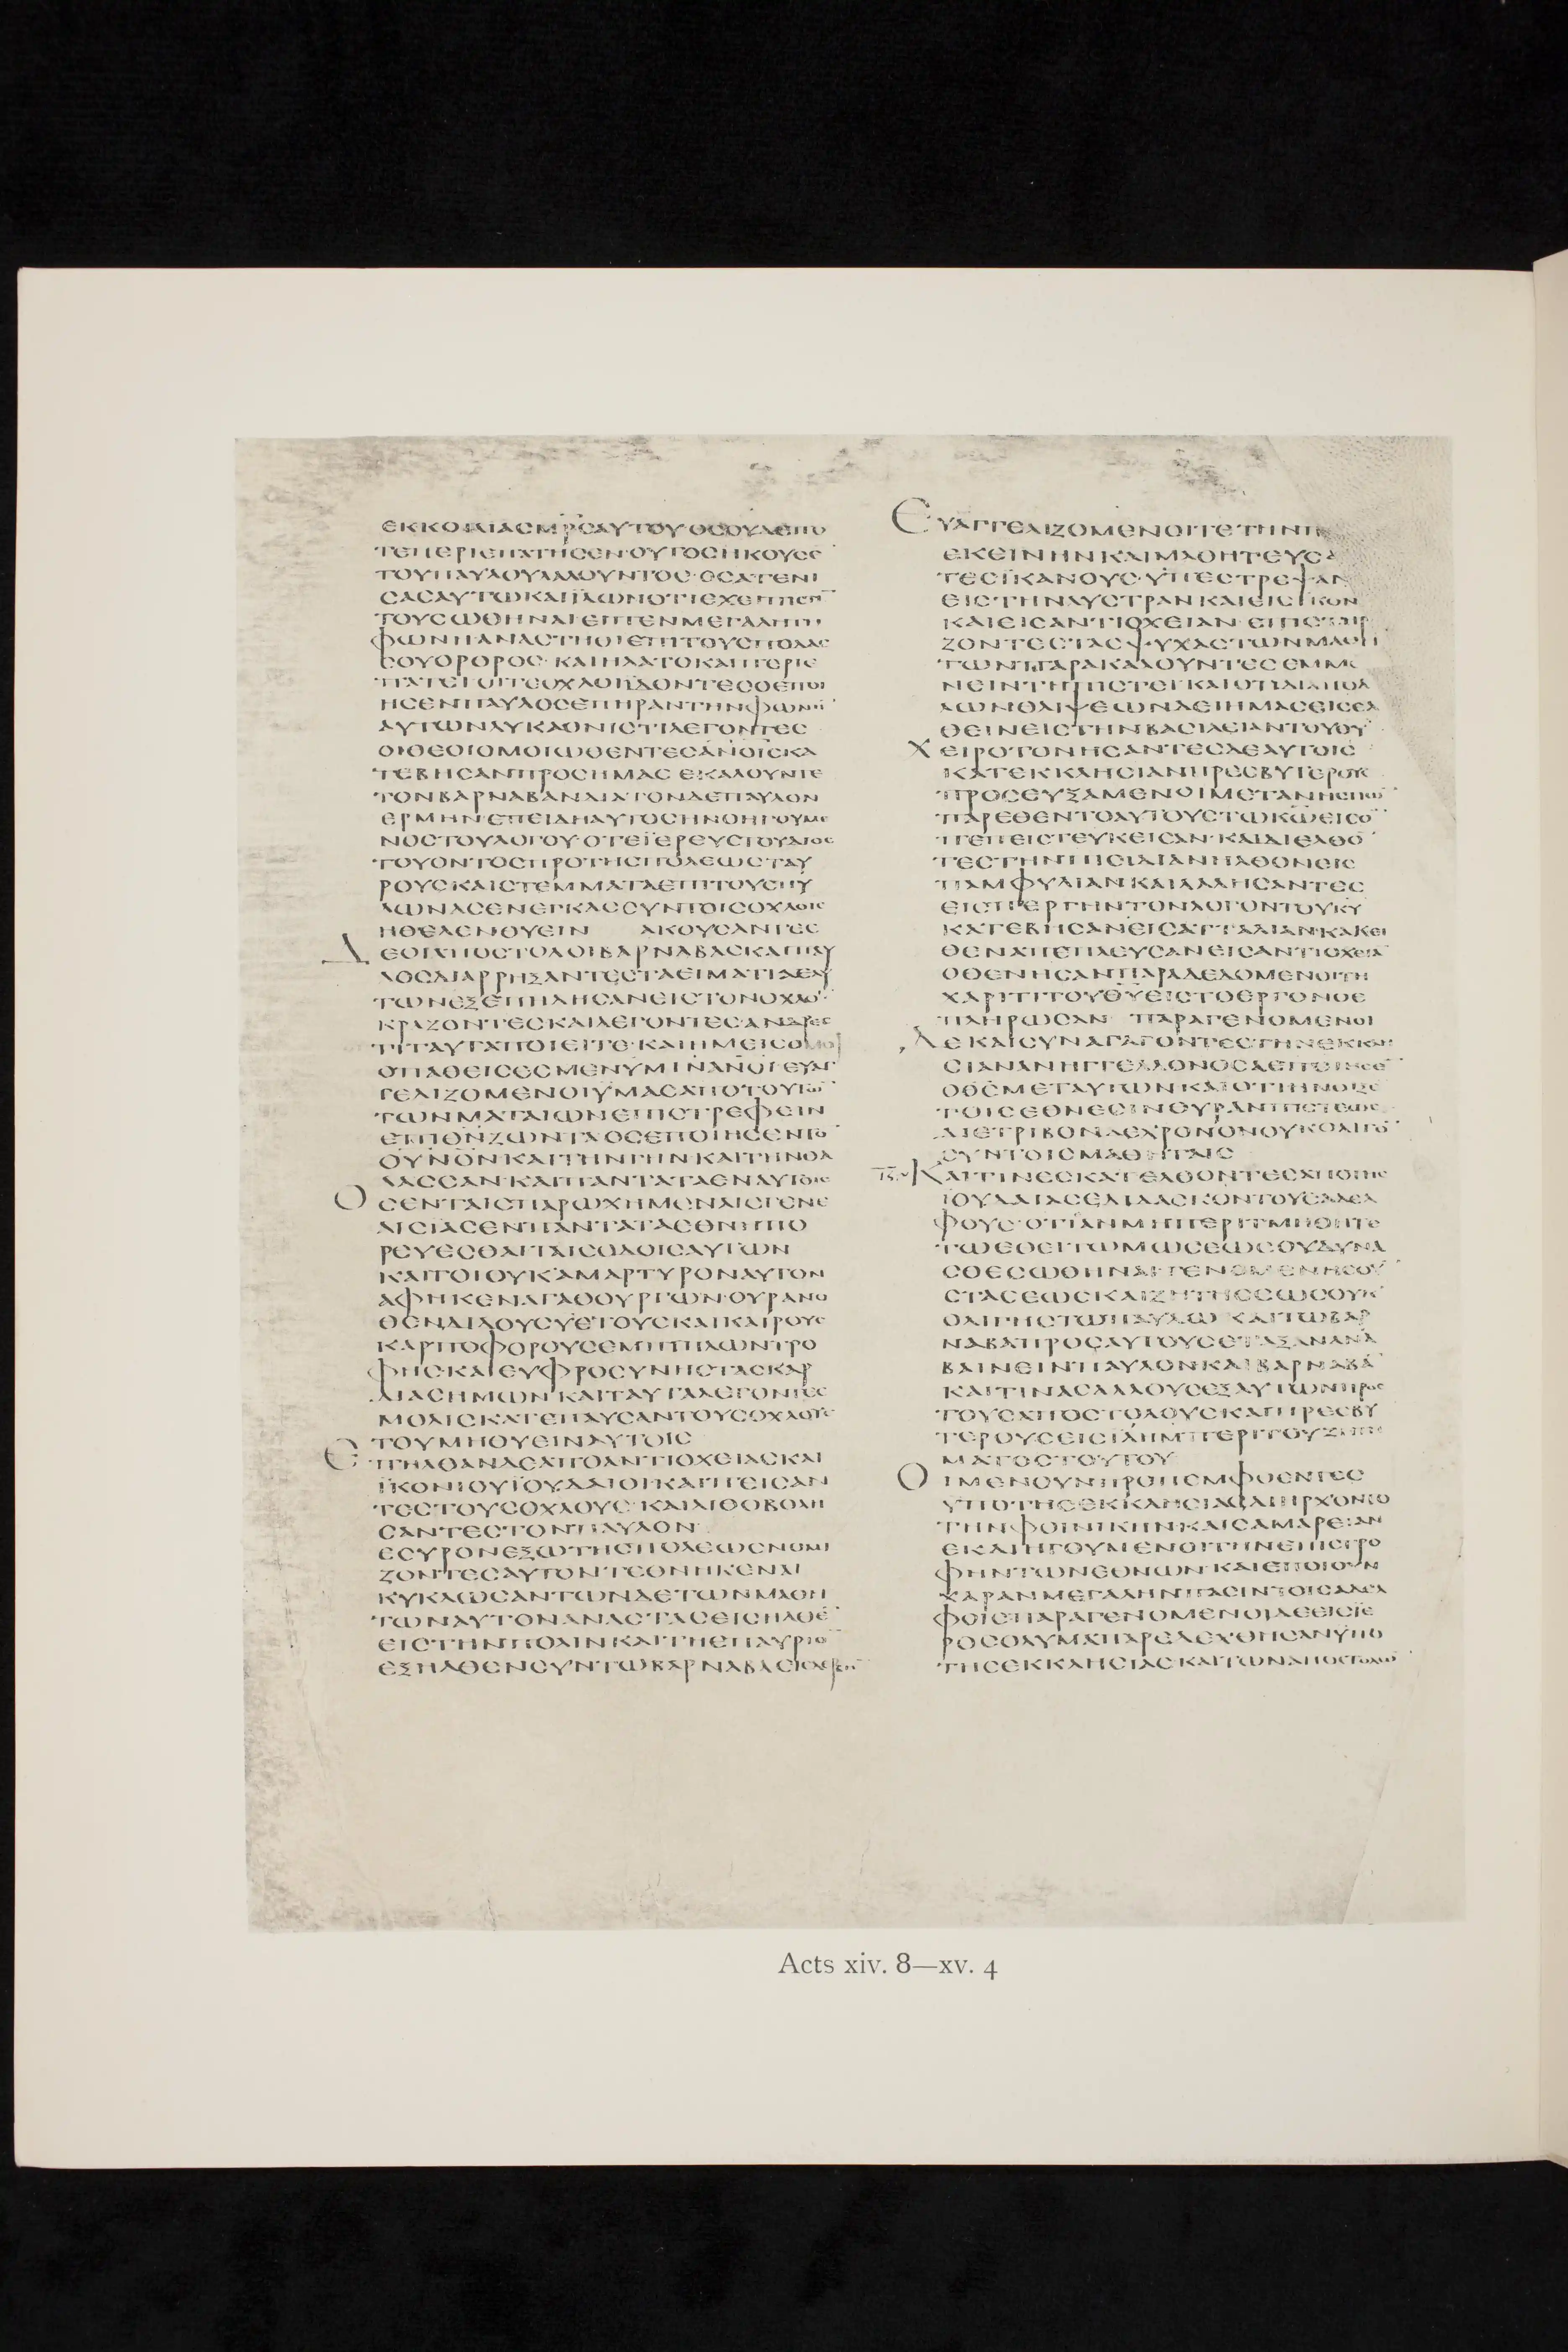 ΕΚΚΟΙΛΙΑϹΜΡ̅ϹΑΥΤΟΥ ΟϹΟΥΔΕΠΟ
ΤΕΠΕΡΙΕΠΑΤΗϹΕΝ·ΟΥΤΟϹΗΚΟΥϹΕ
ΤΟΥΠΑΥΛΟΥΛΑΛΟΥΝΤΟϹ·ΟϹΑΤΕΝΙ
ϹΑϹΑΥΤΩΚΑΙΪΔΩΝΟΤΙΕΧΕΙΠΙϹΤΙ̅
ΤΟΥϹΩΘΗΝΑΙΕΙΠΕΝΜΕΓΑΛΗΤΗ
ΦΩΝΗΑΝΑϹΤΗΘΙΕΠΙΤΟΥϹΠΟΔΑϹ
ϹΟΥΟΡΘΡΟϹ· ΚΑΙΗΛΑΤΟΚΑΙΠΕΡΙΕ
ΠΑΤΕΙ ΟΙΤΕΟΧΛΟΙΪΔΟΝΤΕϹΟΕΠΟΙ
ΗϹΕΝΠΑΥΛΟϹΕΠΗΡΑΝΤΗΝΦΩΝΗ̅
ΑΥΤΩΝΛΥΚΑΟΝΙϹΤΙΛΕΓΟΝΤΕϹ
ΟΙΘΕΟΙΟΜΟΙΩΘΕΝΤΕϹΑΝΟΙϹΚΑ
ΤΕΒΗϹΑΝΠΡΟϹΗΜΑϹ ΕΚΑΛΟΥΝΤΕ
ΤΟΝΒΑΡΝΑΒΑΝΔΙΑ·ΤΟΝΔΕΠΑΥΛΟΝ
ΕΡΜΗΝ·ΕΠΕΙΔΗΑΥΤΟϹΗΝΟΗΓΟΥΜΕ
ΝΟϹΤΟΥΛΟΓΟΥ·ΟΤΕΪΕΡΕΥϹΤΟΥΔΙΟϹ
ΤΟΥΟΝΤΟϹΠΡΟΤΗϹΠΟΛΕΩϹΤΑΥ
ΡΟΥϹΚΑΙϹΤΕΜΜΑΤΑΕΠΙΤΟΥϹΠΥ
ΛΩΝΑϹΕΝΕΓΚΑϹϹΥΝΤΟΙϹΟΧΛΟΙϹ
ΗΘΕΛΕΝΘΥΕΙΝ ΑΚΟΥϹΑΝΤΕϹ
ΔΕΟΙΑΠΟϹΤΟΛΟΙΒΑΡΝΑΒΑϹΚΑΙΠΑΥ
ΛΟϹΔΙΑΡΡΗΞΑΝΤΕϹΤΑΕΙΜΑΤΙΑΕΑΥ
ΤΩΝΕΞΕΠΗΔΗϹΑΝΕΙϹΤΟΝΟΧΛΟ̅·
ΚΡΑΖΟΝΤΕϹΚΑΙΛΕΓΟΝΤΕϹ·ΑΝΔΡΕϹ
ΤΙΤΑΥΤΑΠΟΙΕΙΤΕ·ΚΑΙΗΜΕΙϹΟΜΟΙ
ΟΠΑΘΕΙϹΕϹΜΕΝΥΜΙΝΑΝΟΙ ΕΥΑΓ
ΓΕΛΙΖΟΜΕΝΟΙΥΜΑϹΑΠΟΤΟΥΤΩ̅
ΤΩΝΜΑΤΑΙΩΝΕΠΙϹΤΡΕΦΕΙΝ
ΕΠΙΘΝ̅ΖΩΝΤΑΟϹΕΠΟΙΗϹΕΝΤΟ̅
ΟΥΝΟΝΚΑΙΤΗΝΓΗΝΚΑΙΤΗΝΘΑ
ΛΑϹϹΑΝΚΑΙΠΑΝΤΑΤΑΕΝΑΥΤΟΙϹ
ΟϹΕΝΤΑΙϹΠΑΡΩΧΗΜΕΝΑΙϹΓΕΝΕ
ΑΙϹΙΑϹΕΝΠΑΝΤΑΤΑΕΘΝΗΠΟ
ΡΕΥΕϹΘΑΙΤΑΙϹΟΔΟΙϹΑΥΤΩΝ
ΚΑΙΤΟΙΟΥΚΑΜΑΡΤΥΡΟΝΑΥΤΟΝ
ΑΦΗΚΕΝΑΓΑΘΟΥΡΓΩΝ·ΟΥΡΑΝΟ
ΘΕΝΔΙΔΟΥϹΥΕΤΟΥϹΚΑΙΚΑΙΡΟΥϹ
ΚΑΡΠΟΦΟΡΟΥϹΕΜΠΙΠΛΩΝΤΡΟ
ΦΗϹΚΑΙΕΥΦΡΟϹΥΝΗϹΤΑϹΚΑΡ
ΔΙΑϹΗΜΩΝ ΚΑΙΤΑΥΤΑΛΕΓΟΝΤΕϹ
ΜΟΛΙϹΚΑΤΕΠΑΥϹΑΝΤΟΥϹΟΧΛΟΥϹ
ΤΟΥΜΗΘΥΕΙΝΑΥΤΟΙϹ
ΕΠΗΛΘΑΝΔΕΑΠΟΑΝΤΙΟΧΕΙΑϹΚΑΙ
ΪΚΟΝΙΟΥΪΟΥΔΑΙΟΙ·ΚΑΙΠΕΙϹΑΝ
ΤΕϹΤΟΥϹΟΧΛΟΥϹ·ΚΑΙΛΙΘΟΒΟΛΗ
ϹΑΝΤΕϹΤΟΝΠΑΥΛΟΝ·
ΕϹΥΡΟΝΕΞΩΤΗϹΠΟΛΕΩϹΝΟΜΙ
ΖΟΝΤΕϹΑΥΤΟΝΤΕΘΝΗΚΕΝΑΙ
ΚΥΚΛΩϹΑΝΤΩΝΔΕΤΩΝΜΑΘΗ
ΤΩΝΑΥΤΟΝΑΝΑϹΤΑϹΕΙϹΗΛΘΕ̅
ΕΙϹΤΗΝΠΟΛΙΝΚΑΙΤΗΕΠΑΥΡΙΟ̅
ΕΞΗΛΘΕΝϹΥΝΤΩΒΑΡΝΑΒΑΕΙϹΔΕΡΒΗ̅
ΕΥΑΓΓΕΛΙΖΟΜΕΝΟΙΤΕΤΗΝΠ
ΕΚΕΙΝΗΝΚΑΙΜΑΘΗΤΕΥϹΑ
ΤΕϹΪΚΑΝΟΥϹ·ΥΠΕϹΤΡΕΨΑΝ
ΕΙϹΤΗΝΛΥϹΤΡΑΝΚΑΙΕΙϹΙΚΟΝ
ΚΑΙΕΙϹΑΝΤΙΟΧΕΙΑΝ·ΕΠΙϹΤΗΡΙ
ΖΟΝΤΕϹΤΑϹΨΥΧΑϹΤΩΝΜΑΘΗ
ΤΩΝΠΑΡΑΚΑΛΟΥΝΤΕϹΕΜΜΕ
ΝΕΙΝΤΗΠΙϹΤΕΙ·ΚΑΙΟΤΙΔΙΑΠΟΛ
ΛΩΝΘΛΙΨΕΩΝΔΕΙΗΜΑϹΕΙϹΕΛ
ΘΕΙΝΕΙϹΤΗΝΒΑϹΙΛΕΙΑΝΤΟΥΘΥ̅
ΧΕΙΡΟΤΟΝΗϹΑΝΤΕϹΔΕΑΥΤΟΙϹ
ΚΑΤΕΚΚΛΗϹΙΑΝΠΡΕϹΒΥΤΕΡΟΥϹ
ΠΡΟϹΕΥΞΑΜΕΝΟΙΜΕΤΑΝΗϹΤΙΩ̅
ΠΑΡΕΘΕΝΤΟΑΥΤΟΥϹΤΩΚΩ̅ΕΙϹΟ̅
ΠΕΠΕΙϹΤΕΥΚΕΙϹΑΝ·ΚΑΙΔΙΕΛΘΟ̅
ΤΕϹΤΗΝΠΙϹΙΔΙΑΝΗΛΘΟΝΕΙϹ
ΠΑΜΦΥΛΙΑΝΚΑΙΛΑΛΗϹΑΝΤΕϹ
ΕΙϹΠΕΡΓΗΝΤΟΝΛΟΓΟΝΤΟΥΚΥ̅
ΚΑΤΕΒΗϹΑΝΕΙϹΑΤΤΑΛΙΑΝ·ΚΑΚΕΙ
ΘΕΝΑΠΕΠΛΕΥϹΑΝΕΙϹΑΝΤΙΟΧΕΙΑ̅
ΟΘΕΝΗϹΑΝΠΑΡΑΔΕΔΟΜΕΝΟΙΤΗ
ΧΑΡΙΤΙΤΟΥΘΥ̅ΕΙϹΤΟΕΡΓΟΝΟΕ
ΠΛΗΡΩϹΑΝ ΠΑΡΑΓΕΝΟΜΕΝΟΙ
ΔΕΚΑΙϹΥΝΑΓΑΓΟΝΤΕϹΤΗΝΕΚΚΛΗ
ϹΙΑΝΑΝΗΓΓΕΛΛΟΝΟϹΑΕΠΟΙΗϹΕ̅
ΟΘϹ̅ΜΕΤΑΥΤΩΝΚΑΙΟΤΙΗΝΟΙΞΕ
ΤΟΙϹΕΘΝΕϹΙΝΘΥΡΑΝΠΙϹΤΕΩϹ
ΔΙΕΤΡΙΒΟΝΔΕΧΡΟΝΟΝΟΥΚΟΛΙΓΟ̅
ϹΥΝΤΟΙϹΜΑΘΗΤΑΙϹ
ΚΑΙΤΙΝΕϹΚΑΤΕΛΘΟΝΤΕϹΑΠΟΤΗϹ
ΪΟΥΔΑΙΑϹΕΔΙΔΑϹΚΟΝΤΟΥϹΑΔΕΛ
ΦΟΥϹ·ΟΤΙΑΝΜΗΠΕΡΙΤΜΗΘΗΤΕ
ΤΩΕΘΕΙΤΩΜΩϹΕΩϹΟΥΔΥΝΑ
ϹΘΕϹΩΘΗΝΑΙ·ΓΕΝΟΜΕΝΗϹΟΥ̅
ϹΤΑϹΕΩϹΚΑΙΖΗΤΗϹΕΩϹΟΥΚ
ΟΛΙΓΗϹΤΩΠΑΥΛΩ ΚΑΙΤΩΒΑΡ
ΝΑΒΑΠΡΟϹΑΥΤΟΥϹΕΤΑΞΑΝΑΝΑ
ΒΑΙΝΕΙΝΠΑΥΛΟΝΚΑΙΒΑΡΝΑΒΑ̅
ΚΑΙΤΙΝΑϹΑΛΛΟΥϹΕΞΑΥΤΩΝΠΡΟϹ
ΤΟΥϹΑΠΟϹΤΟΛΟΥϹΚΑΙΠΡΕϹΒΥ
ΤΕΡΟΥϹΕΙϹΙΛΗΜΠΕΡΙΤΟΥΖΗΤΗ
ΜΑΤΟϹΤΟΥΤΟΥ
ΟΙΜΕΝΟΥΝΠΡΟΠΕΜΦΘΕΝΤΕϹ
ΥΠΟΤΗϹΕΚΚΛΗϹΙΑϹΔΙΗΡΧΟΝΤΟ
ΤΗΝΦΟΙΝΙΚΗΝΚΑΙϹΑΜΑΡΕΙΑΝ
ΕΚΔΙΗΓΟΥΜΕΝΟΙΤΗΝΕΠΙϹΤΡΟ
ΦΗΝΤΩΝΕΘΝΩΝ ΚΑΙΕΠΟΙΟΥΝ
ΧΑΡΑΝΜΕΓΑΛΗΝΠΑϹΙΝΤΟΙϹΑΔΕΛ
ΦΟΙϹΠΑΡΑΓΕΝΟΜΕΝΟΙΔΕΕΙϹΪΕ
ΡΟϹΟΛΥΜΑΠΑΡΕΔΕΧΘΗϹΑΝΥΠΟ
ΤΗϹΕΚΚΛΗϹΙΑϹΚΑΙΤΩΝΑΠΟϹΤΟΛΩ̅
Acts xiv. 8—xv. 4